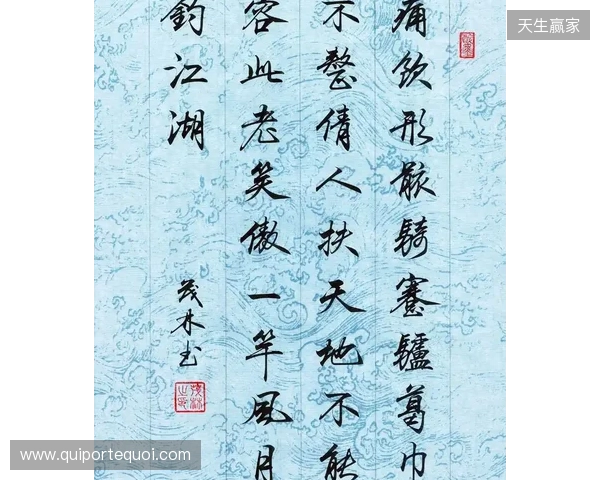 痛飲形骸騎蹇驢葛巾
不整倩人扶天地不能
容此老笑傲一竿風月
釣江湖
茂林书
天生赢家
www.quiportequoi.com